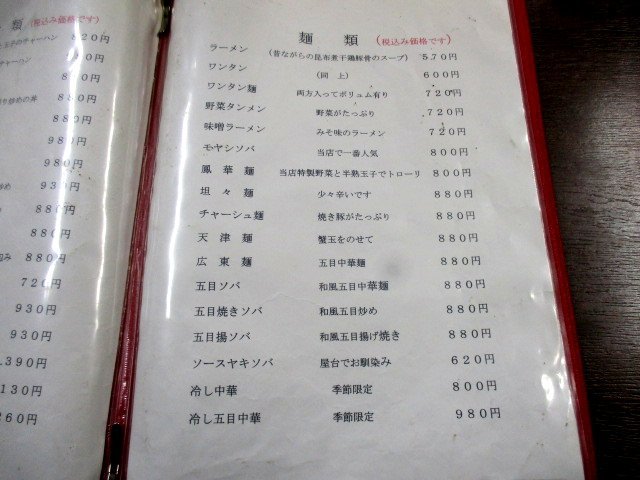 類 (税込み価格です)
玉子のチャーハン 820円
チャーハン 880円
800円
880円
980円
980円
930円
880円
880円
720円
930円
930円
1,390円
麺 類 (税込み価格です)
ラーメン (昔ながらの昆布煮干鶏豚骨のスープ) 570円
ワンタン (同 上) 600円
ワンタン麺 両方入ってボリュム有り 720円
野菜タンメン 野菜がたっぷり 720円
味噌ラーメン みそ味のラーメン 720円
モヤシソバ 当店で一番人気 800円
鳳 華 麺 当店特製野菜と半熟玉子でトローリ 800円
坦 々 麺 少々辛いです 880円
チャーシュ麺 焼き豚がたっぷり 880円
天 津 麺 蟹玉をのせて 880円
広 東 麺 五目中華麺 880円
五目ソバ 和風五目中華麺 880円
五目焼きソバ 和風五目炒め 880円
五目揚ソバ 和風五目揚げ焼き 880円
ソースヤキソバ 屋台でお馴染み 620円
冷し中華 季節限定 800円
冷し五目中華 季節限定 980円